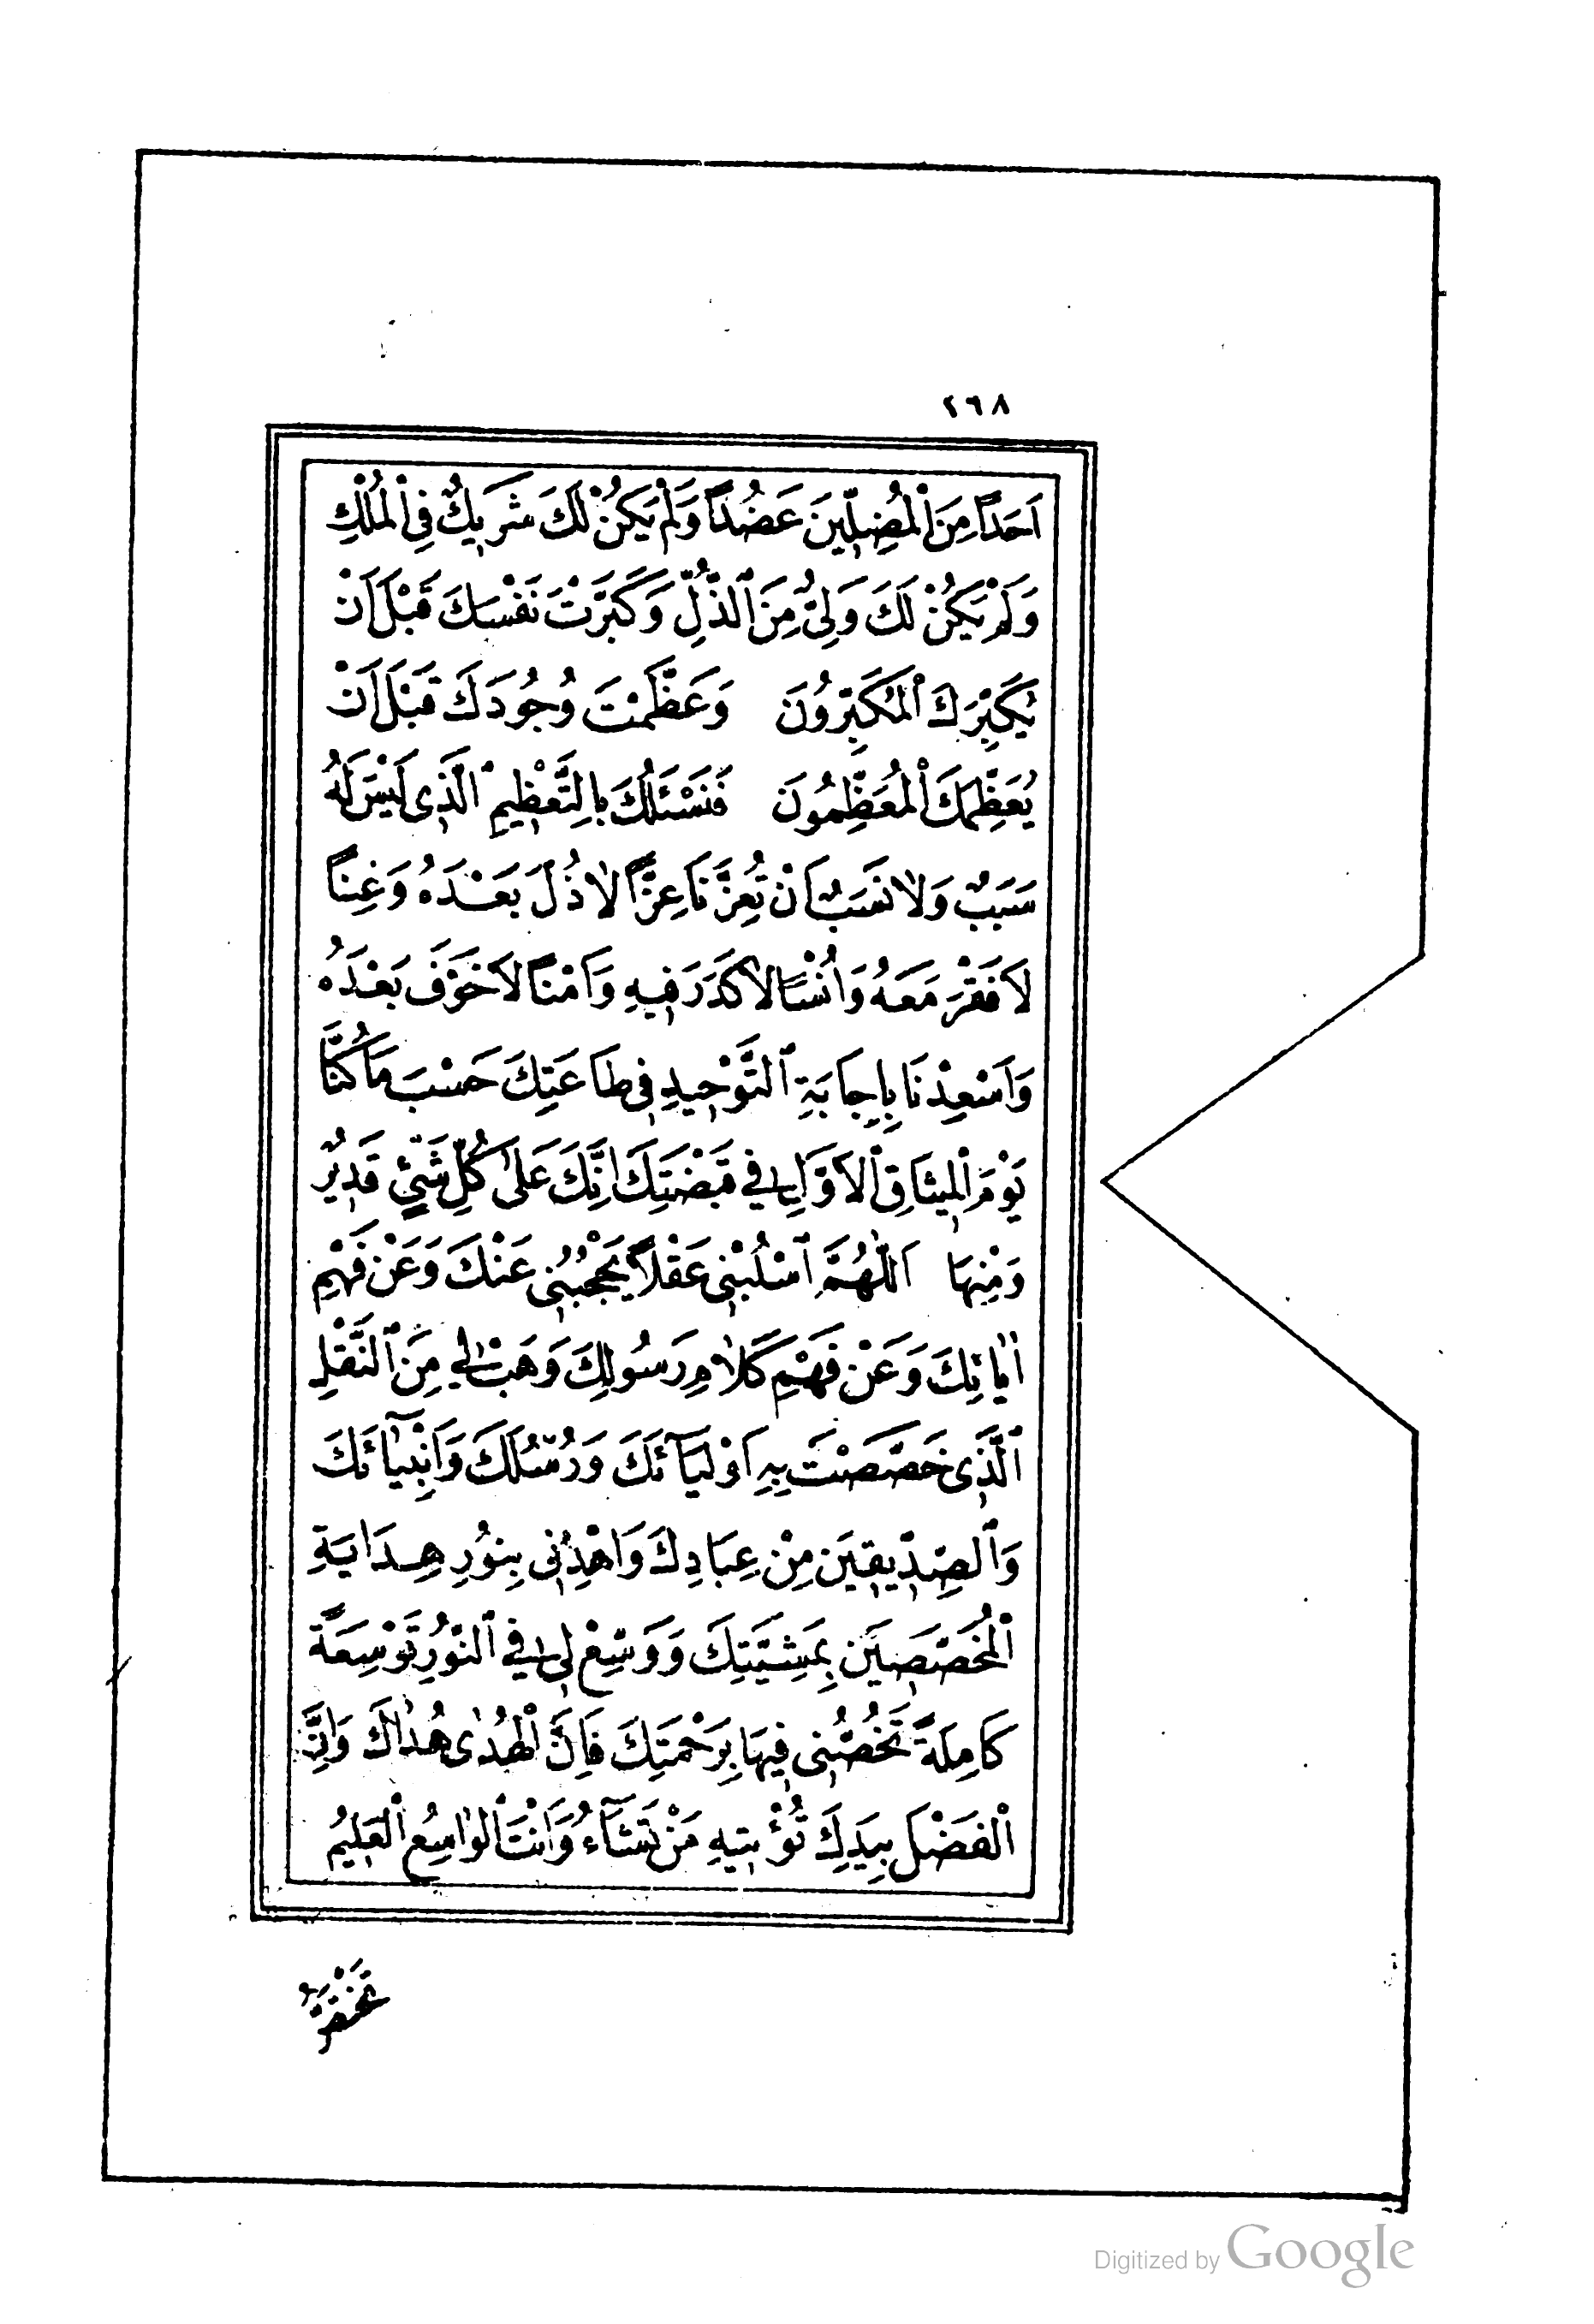 ٢٦٨
اَحَداً مِنَ ٱلْمُضِلِّينَ عَضُداً وَلَمْ يَكُنْ لَكَ شَرِيكٌ فِي ٱلْمُلْكِ
وَلَمْ يَكُنْ لَكَ وَلِيٌّ مِنَ ٱلذُّلِّ وَكَبَّرْتَ نَفْسَكَ قَبْلَ اَنْ
يُكَبِّرَكَ ٱلْمُكَبِّرُونَ وَعَظَّمْتَ وُجُودَكَ قَبْلَ اَنْ
يُعَظِّمَكَ ٱلْمُعَظِّمُونَ فَنَسْئَلُكَ بِالتَّعْظِيمِ ٱلَّذِى لَيْسَ لَهُ
سَبَبٌ وَلاٰ نَسَبٌ اَنْ تُعِزَّنَا عِزًّا لاٰ ذُلَّ بَعْدَهُ وَغِناً
لاَ فَقْرَ مَعَهُ وَاُنْسًا لاٰ كَدَرَ فِيهِ وَاَمْناً لاَ خَوْفَ بَعْدَهُ
وَاَسْعِدْنَا بِاِجَابَةِ ٱلتَّوْحِيدِ فِى طَاعَتِكَ حَسْبَ مَا كُنَّا
يَوْمَ ٱلْمِيثَاقِ ٱلاَوَّلِ فِي قَبْضَتِكَ اِنَّكَ عَلىٰ كُلِّ شَيْئٍ قَدِيرٌ
وَمِنْهَا اَللّٰهُمَّ ٱسْلُبْنِى عَقْلاً يَحْجُبُنِى عَنْكَ وَعَنْ فَهْمِ
اٰيَاتِكَ وَعَنْ فَهْمِ كَلاٰمِ رَسُولِكَ وَهَبْ لِي مِنَ ٱلْنَّقْلِ
ٱلَّذِى خَصَّصْتَ بِهِ اَوْلِيَآئَكَ وَرُسُلَكَ وَاَنْبِيٰآئَكَ
وَٱلصِّدِّيقِينَ مِنْ عِبَادِكَ وَاهْدِنِى بِنُورِ هِدَايَةِ
ٱلْمُخَصَّصِينَ بِمَشِيَّتِكَ وَوَسِّعْ لِى فِي ٱلنُّورِ تَوْسِعَةً
كَامِلَةً تَخُصُّنِى فِيهَا بِرَحْمَتِكَ فَاِنَّ ٱلْهُدٰى هُدٰاكَ وَاِنَّ
ٱلْفَضْلَ بِيَدِكَ تُؤْتِيهِ مَنْ تَشَآءُ وَاَنْتَ ٱلْوٰاسِعُ ٱلْعَلِيمُ
Digitized by Google